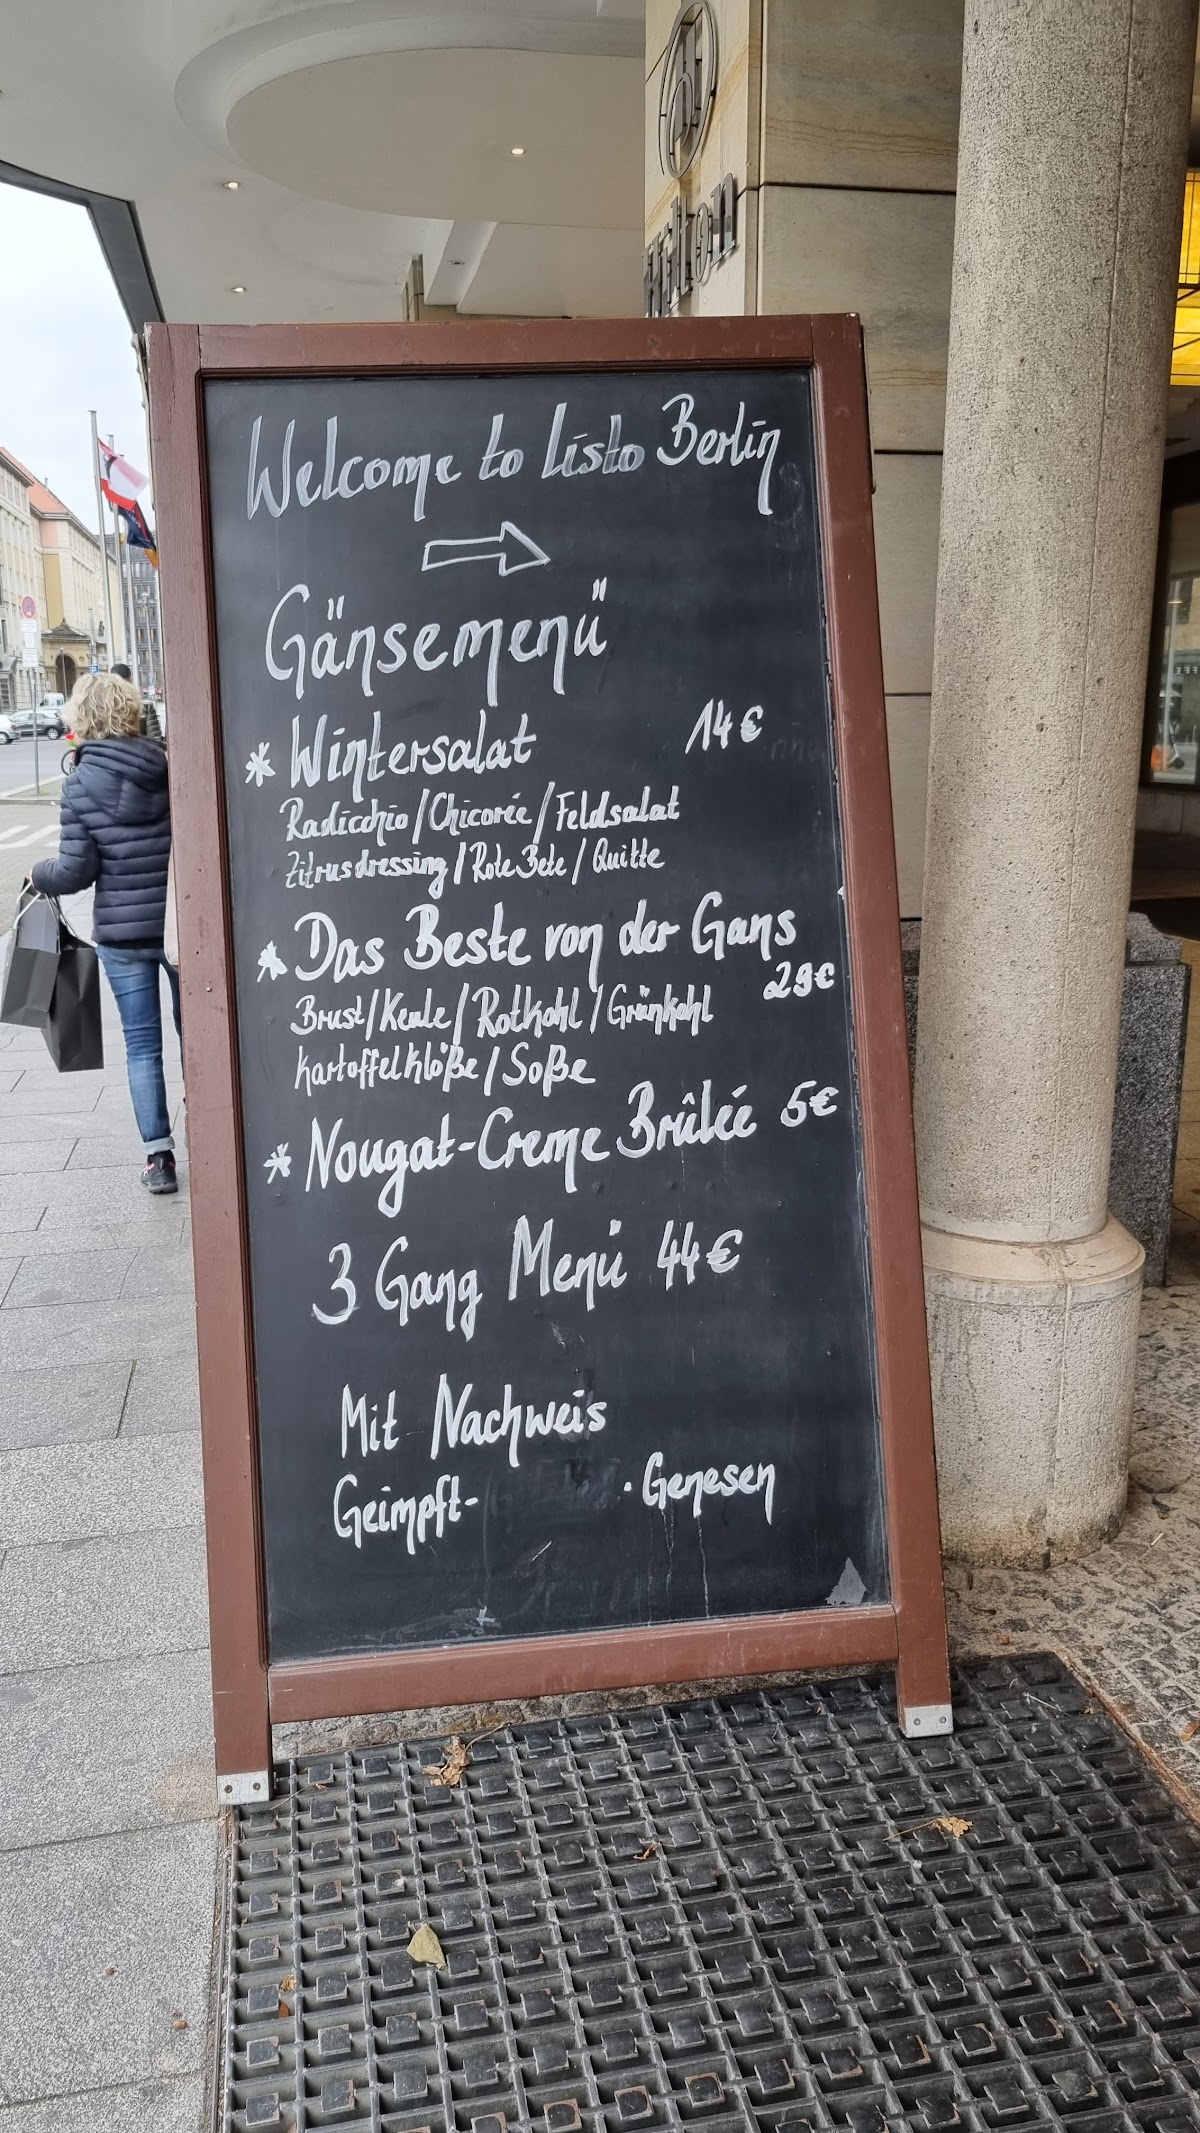 Hilton
Welcome to Listo Berlin
Gänsemenü
* Wintersalat 14€
Radicchio/Chicorée/Feldsalat
Zitrusdressing/Rote Bete/Quitte
* Das Beste von der Gans
29€
Brust/Keule/Rotkohl/Grünkohl
Kartoffelklöße/Soße
* Nougat-Creme Brûlée 5€
3 Gang Menü 44€
Mit Nachweis
Geimpft- · Genesen